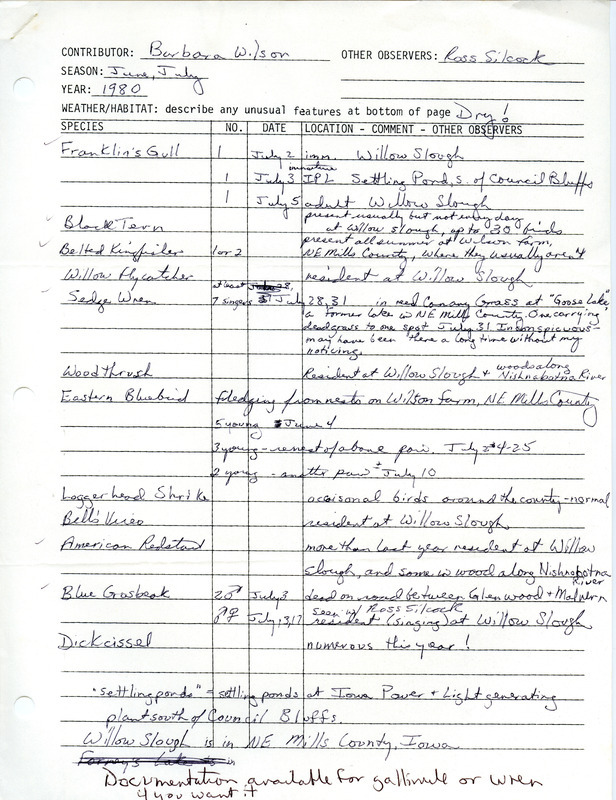 CONTRIBUTOR: Barbara Wilson OTHER OBSERVERS: Ross Silcock
SEASON: June, July
YEAR: 1980
WEATHER/HABITAT: describe any unusual features at bottom of page Dry!
SPECIES NO. DATE LOCATION - COMMENT - OTHER OBSERVERS
Franklin's Gull 1 July 2 imm. Willow Slough
1 July 3 immature IPL Settling Pond, s. of Council Bluffs
1 July 5 adult Willow Slough
Black Tern present usually but not every day
at Willow Slough, up to 30 birds
Belted Kingfisher 1 or 2 present all summer at Wilson Farm,
NE Mills County, where they usually aren't
Willow Flycatcher resident at Willow Slough
Sedge Wren at least 7 singers July 28, 31 in reed Canary Grass at "Goose Lake",
a former lake in NE Mills County. One carrying
dead grass to one spot July 31. Inconspicuous-
may have been there a long time without my
noticing.
Wood thrush Resident at Willow Slough + woods along Nishnabotna River
Eastern Bluebird fledging from nests on Wilson Farm, NE Mills County
5 young June 4
3 young - renest of above pair. July 24-25
2 young - another pair July 10
Loggerhead Shrike occaisonal birds around the county - normal
Bell's Vireo resident at Willow Slough
American Redstart more than last year resident at Willow
Slough, and some in wood along Nishnabotna River
Blue Grosbeak 2♂ July 3 dead on road between Glenwood + Malvern
seen w/ Ross Silcock
♂♀ July 13, 17 resident (singing) at Willow Slough
Dickcissel numerous this year!
"settling ponds" = settling ponds at Iowa Power + Light generating
plant south of Council Bluffs.
Willow Slough is in NE Mills County, Iowa
Forney's Lake is in
Documentation available for gallinule or wren
if you want it